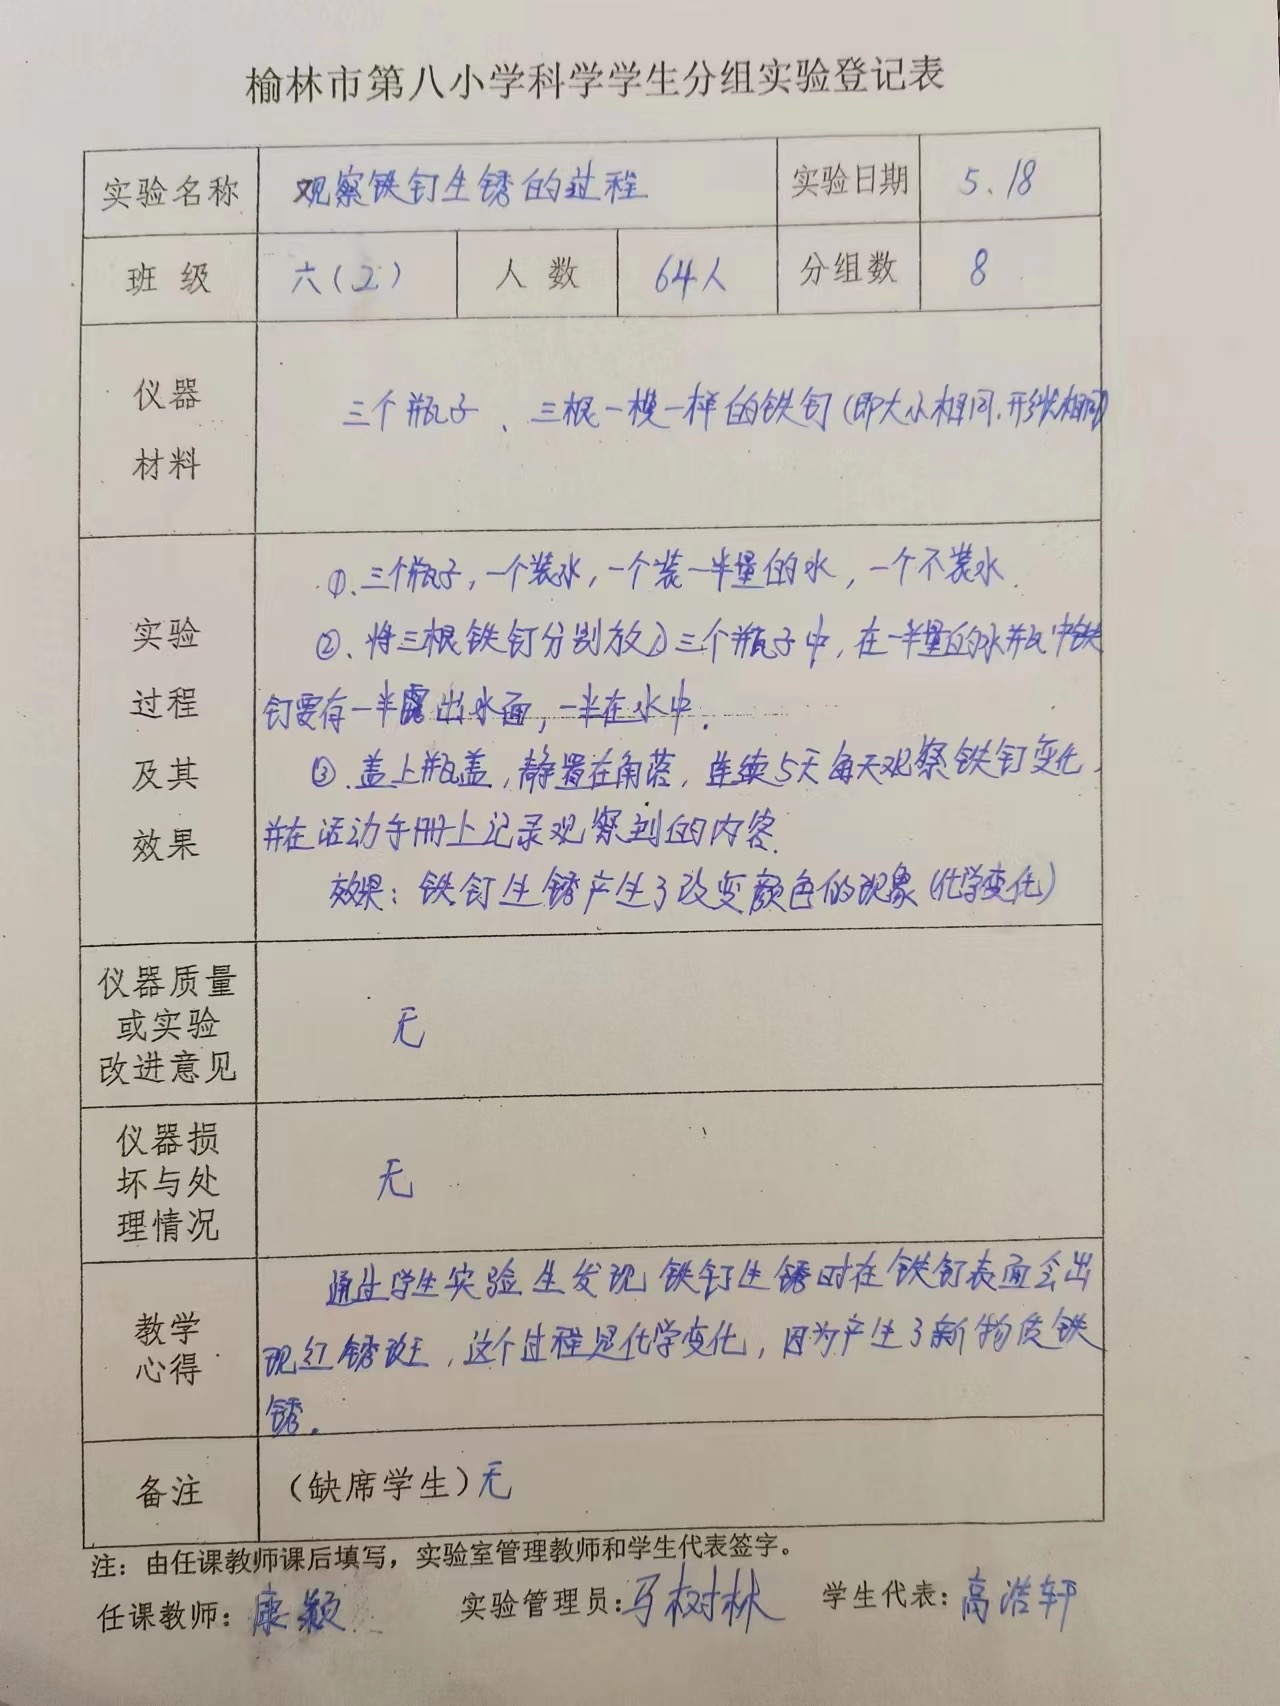 榆林市第八小学科学学生分组实验登记表
实验名称 观察铁钉生锈的过程 实验日期 5.18
班 级 六(2) 人 数 64人 分组数 8
仪器
材料
三个瓶子、三根一模一样的铁钉(即大小相同.形状相同)
实验
过程
及其
效果
①.三个瓶子,一个装水,一个装一半量的水,一个不装水.
②、将三根铁钉分别放入三个瓶子中,在一半量的水瓶中铁
钉要有一半露出水面,一半在水中.
③.盖上瓶盖,静置在角落,连续5天每天观察铁钉变化,
并在活动手册上记录观察到的内容.
效果:铁钉生锈产生了改变颜色的现象(化学变化)
仪器质量
或实验
改进意见
无
仪器损
坏与处
理情况
无
教学
心得
通过学生实验生发现铁钉生锈时在铁钉表面会出
现红锈斑,这个过程是化学变化,因为产生了新物质铁
锈.
备注 (缺席学生)无
注：由任课教师课后填写，实验室管理教师和学生代表签字。
任课教师:康颖 实验管理员:马树林 学生代表:高浩轩